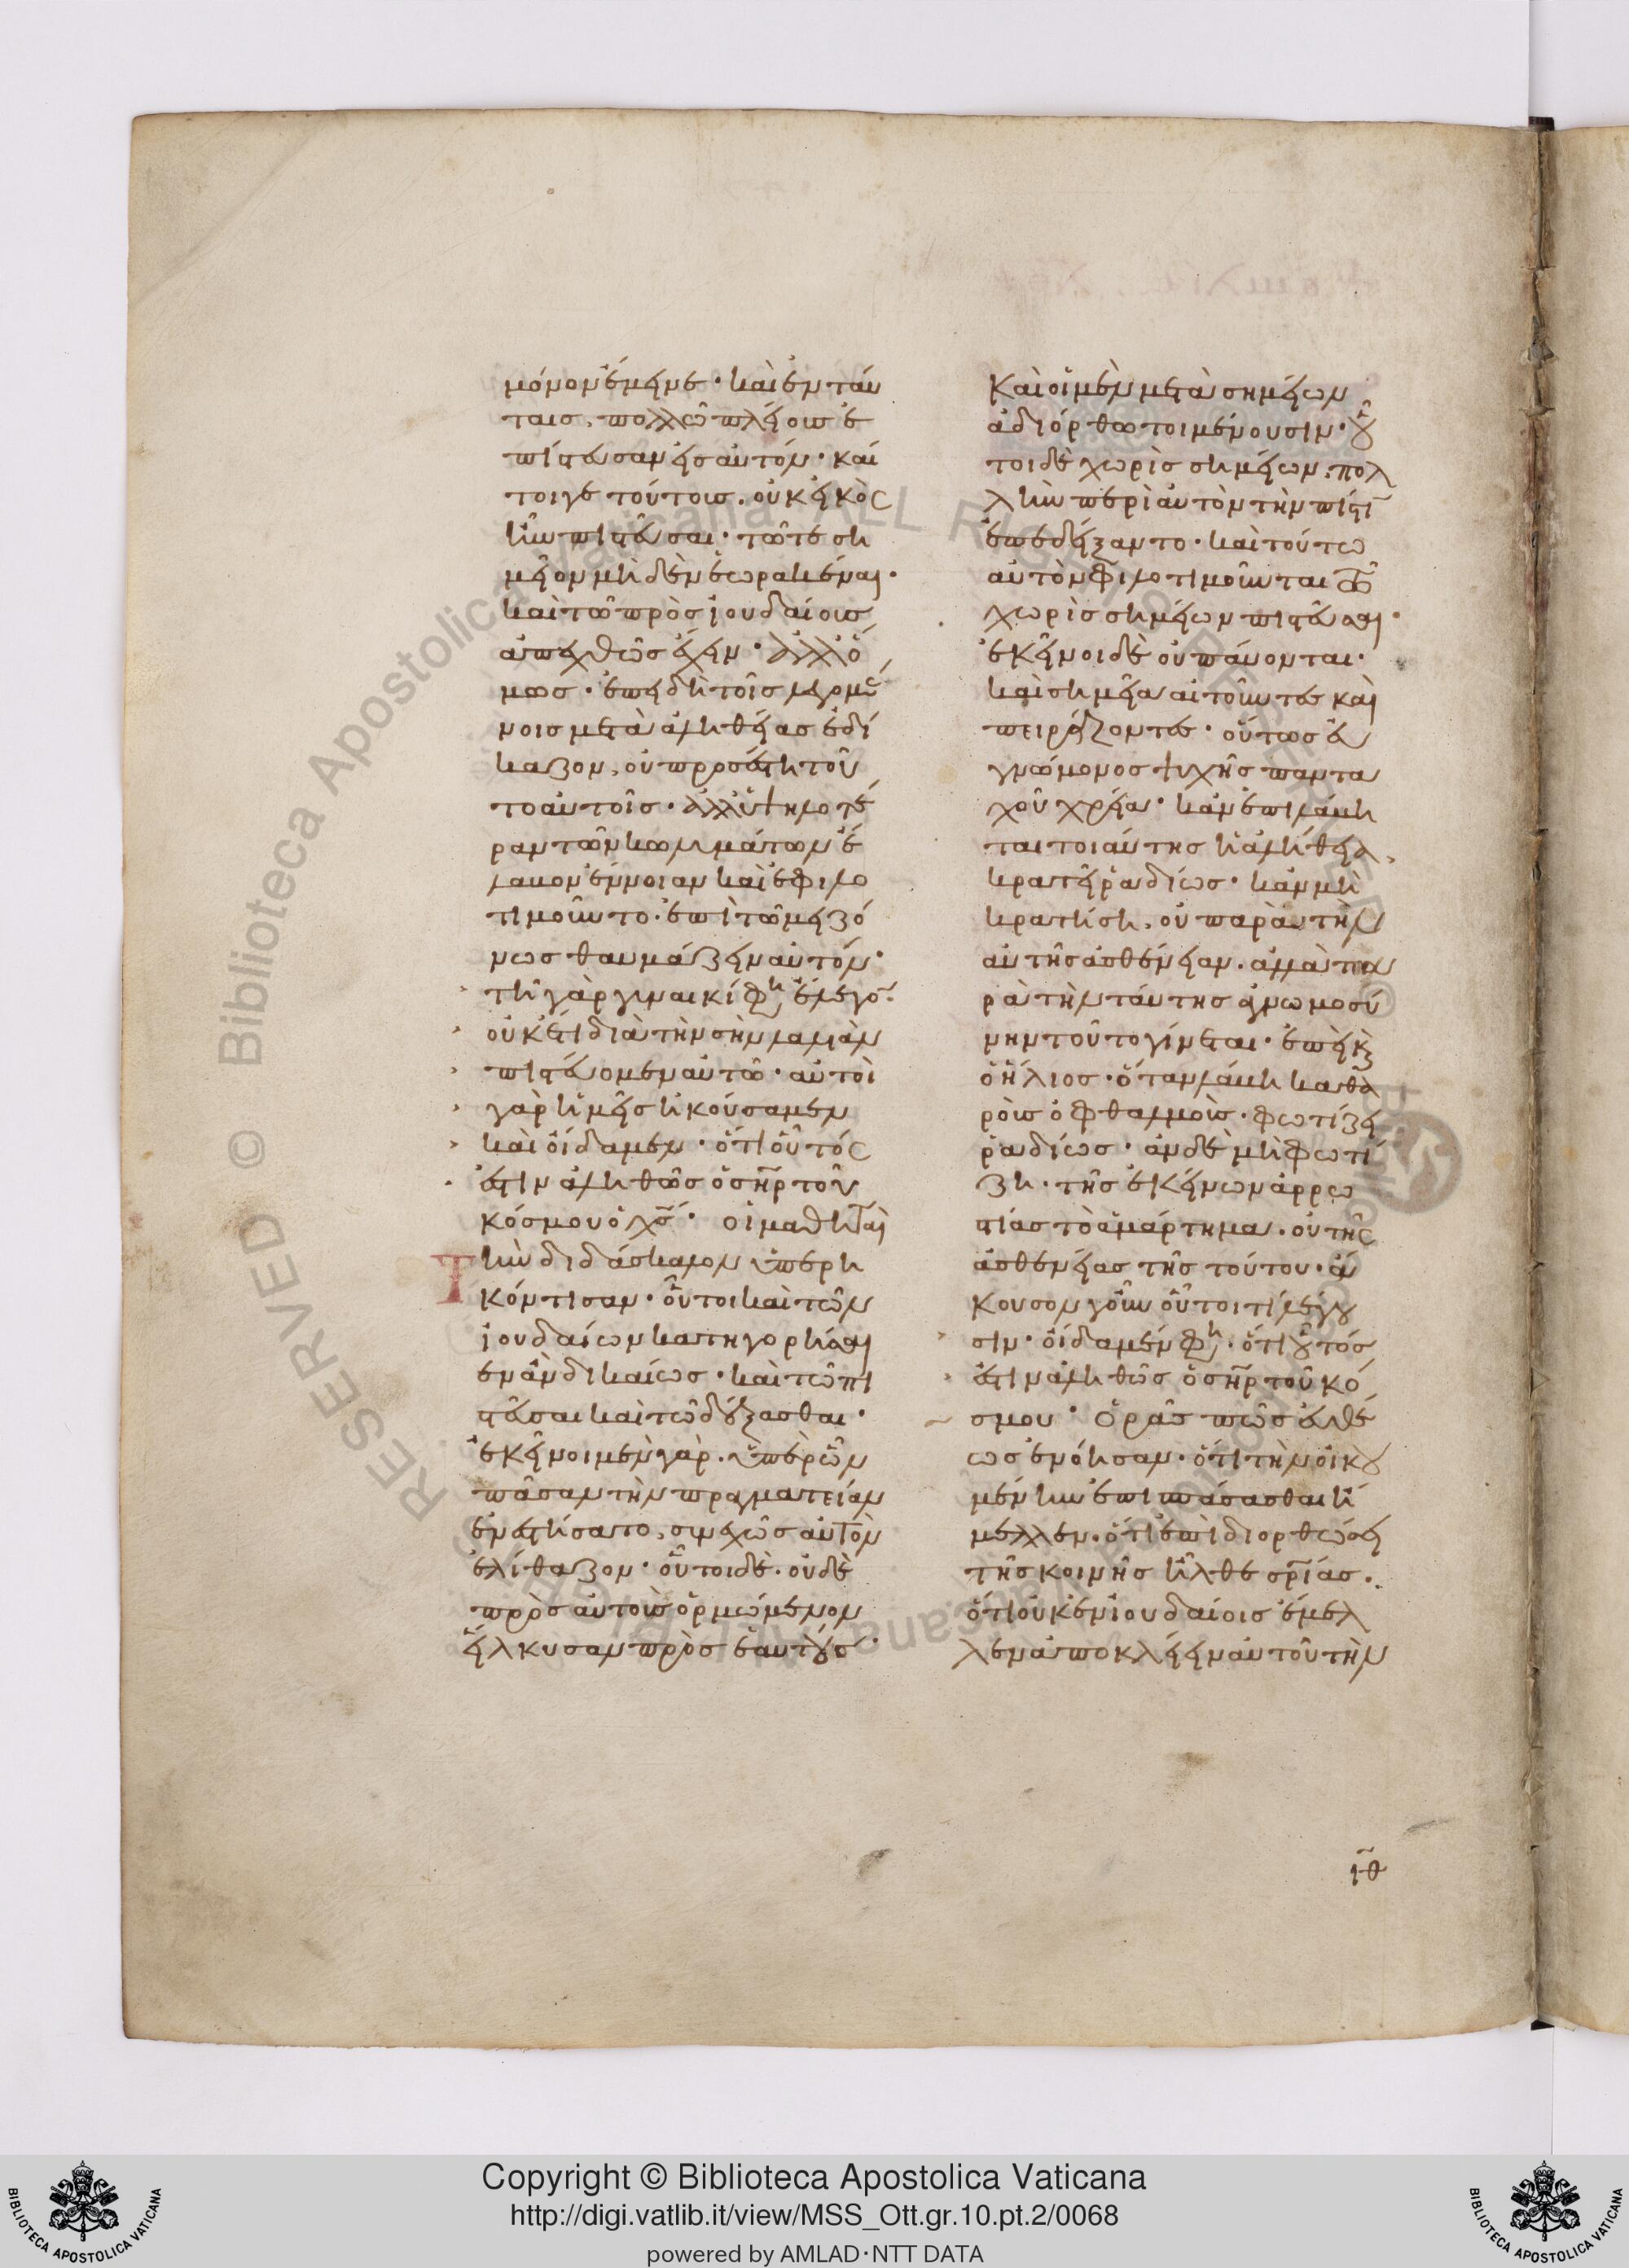 μόνον ἔμεινε· καὶ ἐν ταύ
ταις, πολλῶ πλείους ἐ
πίστευσαν εἰς αὐτόν· καί
τοιγε τούτοις, οὐκ εἰκὸς
ἦν πιστεῦσαι· τῶ τε ση
μεῖον μηδὲν ἑωρακέναι·
καὶ τῶ πρὸς ἰουδαίους
ἀπεχθῶς ἔχειν· ἀλλ' ὅ
μως· ἐπειδὴ τοῖς λεγομέ
νοις μετὰ ἀληθείας ἐδί
καζον, οὐ προσέστη τοῦ
το αὐτοῖς· ἀλλ' ὑψηλοτέ
ραν τῶν κωλυμάτων ἔ
λαβον ἔννοιαν καὶ ἐφιλο
τιμοῦντο· ἐπὶ τῶ μειζό
νως θαυμάζειν αὐτόν·
τῆ γὰρ γυναικί φη ἔλεγον·
οὐκέτι διὰ τὴν σὴν λαλιὰν
πιστεύομεν αὐτῶ· αὐτοὶ
γὰρ ἡμεῖς ἠκούσαμεν
καὶ οἴδαμεν· ὅτι οὗτός
ἐστιν ἀληθῶς ὁ σηρ τοῦ
κόσμου ὁ χς· οἱ μαθηταὶ
τὴν διδάσκαλον ὑπερη
κόντισαν· οὗτοι καὶ τῶν
ἰουδαίων κατηγορήσαι
εν ἂν δικαίως· καὶ τῶ πι
στεῦσαι καὶ τῶ δέξασθαι·
ἐκεῖνοι μὲν γὰρ, ὑπὲρ ὧν
πᾶσαν τὴν πραγματείαν
ἐνεστήσατο, συνεχῶς αὐτὸν
ἐλίθαζον· οὗτοι δὲ, οὐδὲ
πρὸς αὐτοὺς ὁρμώμενον
εἵλκυσαν πρὸς ἑαυτούς·
καὶ οἱ μὲν μετὰ σημείων
ἀδιόρθωτοι μένουσιν· οὗ
τοι δὲ χωρὶς σημείων, πολ
λὴν περὶ αὐτὸν τὴν πίστιν
ἐπεδείξαντο· καὶ τούτω
αὐτὸν φιλοτιμοῦνται τῶ
χωρὶς σημείων πιστεῦσαι·
ἐκεῖνοι δὲ οὐ παύονται·
καὶ σημεῖα αἰτοῦντες καὶ
πειράζοντες· οὕτως εὐ
γνώμονος ψυχῆς παντα
χοῦ χρεία· κἂν ἐπιλάβη
ται τοιαύτης ἡ ἀλήθεια,
κρατεῖ ῥαδίως· κἂν μὴ
κρατήση, οὐ παρὰ τὴν
αὐτῆς ἀσθένειαν, ἀλλὰ πα
ρὰ τὴν ταύτης ἀγνωμοσύ
νην τοῦτο γίνεται· ἐπεὶ καὶ
ὁ ἥλιος· ὅταν λάβη καθα
ροὺς ὀφθαλμοὺς· φωτίζει
ῥαδίως· ἂν δὲ μὴ φωτί
ζη· τῆς ἐκείνων ἀρρω
στίας τὸ ἁμάρτημα, οὐ τῆς
ἀσθενείας τῆς τούτου· ἄ
κουσον γοῦν οὗτοι τί λέγου
σιν· οἴδαμέν φη, ὅτι οὗτός
ἐστιν ἀληθῶς ὁ σηρ τοῦ κό
σμου· ὁρᾶς πῶς εὐθέ
ως ἐνόησαν· ὅτι τὴν οἰκου
μένην ἐπισπάσασθαι ἤ
μελλεν, ὅτι ἐπὶ διορθώσει
τῆς κοινῆς ἦλθε σρίας,
ὅτι οὐκ ἐν ἰουδαίοις ἔμελ
λεν ἀποκλείειν αὐτοῦ τὴν
ιθ
Copyright © Biblioteca Apostolica Vaticana
http://digi.vatlib.it/view/MSS_Ott.gr.10.pt.2/0068
powered by AMLAD·NTT DATA
BIBLIOTECA APOSTOLICA VATICANA
BIBLIOTECA APOSTOLICA VATICANA